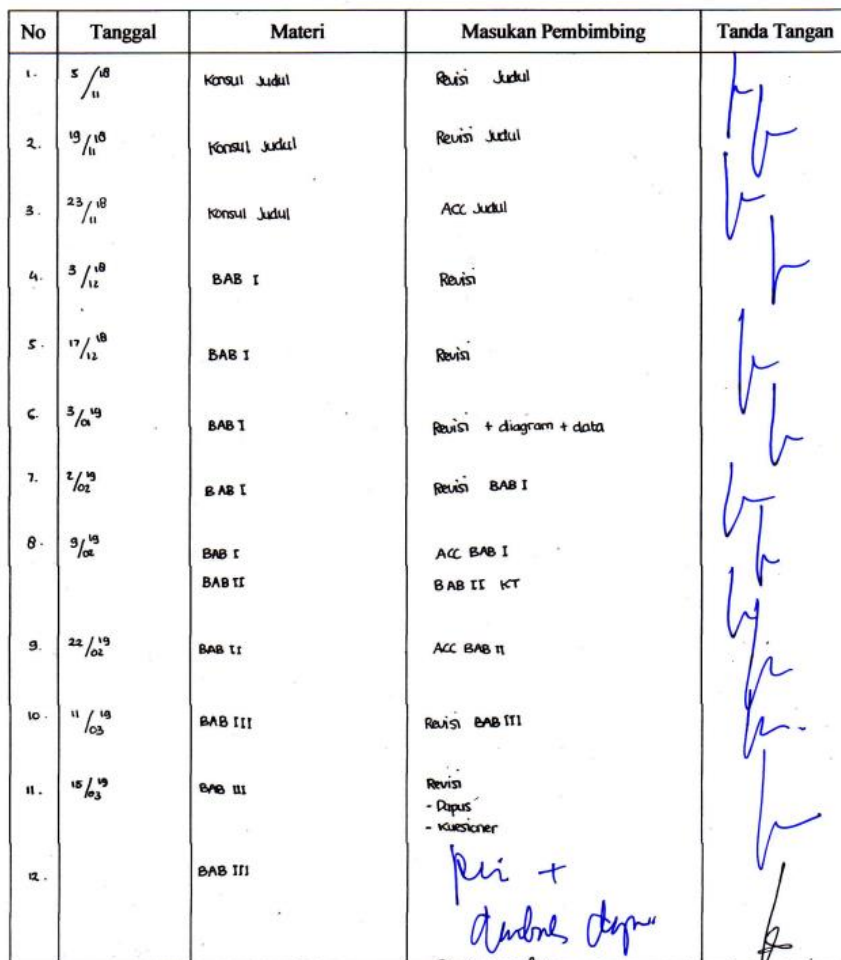 No Tanggal Materi Masukan Pembimbing Tanda Tangan
1. 5/11 18 Konsul Judul Revisi Judul
2. 19/11 18 Konsul Judul Revisi Judul
3. 23/11 18 Konsul Judul ACC Judul
4. 3/12 18 BAB I Revisi
5. 17/12 18 BAB I Revisi
6. 3/01 19 BAB I Revisi + diagram + data
7. 2/02 19 BAB I Revisi BAB I
8. 9/02 19 BAB I ACC BAB I
BAB II BAB II KT
9. 22/02 19 BAB II ACC BAB II
10. 11/03 19 BAB III Revisi BAB III
11. 15/03 19 BAB III Revisi
- Dapus
- Kuesioner
12. BAB III +